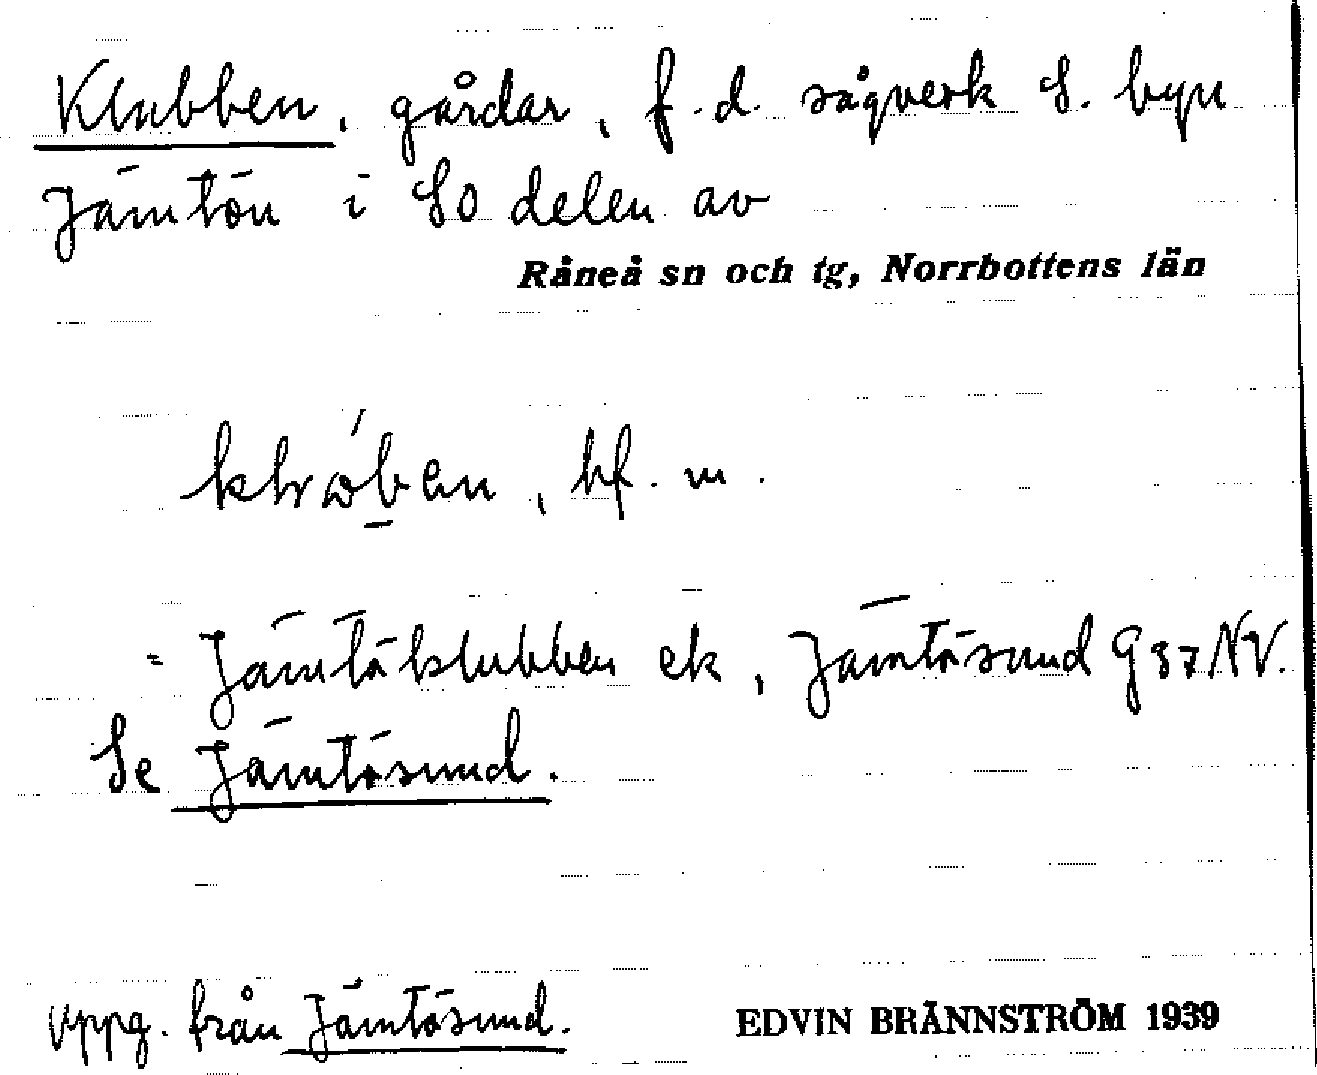 Klubben, gårdar, f.d. sågverk S. byn
Jämtön i SO delen av
Råneå sn och tg, Norrbottens län
bf. m.
= Jämtöklubben ek, Jämtösund G37NV.
Se Jämtösund.
uppg. från Jämtösund.
EDVIN BRÄNNSTRÖM 1939